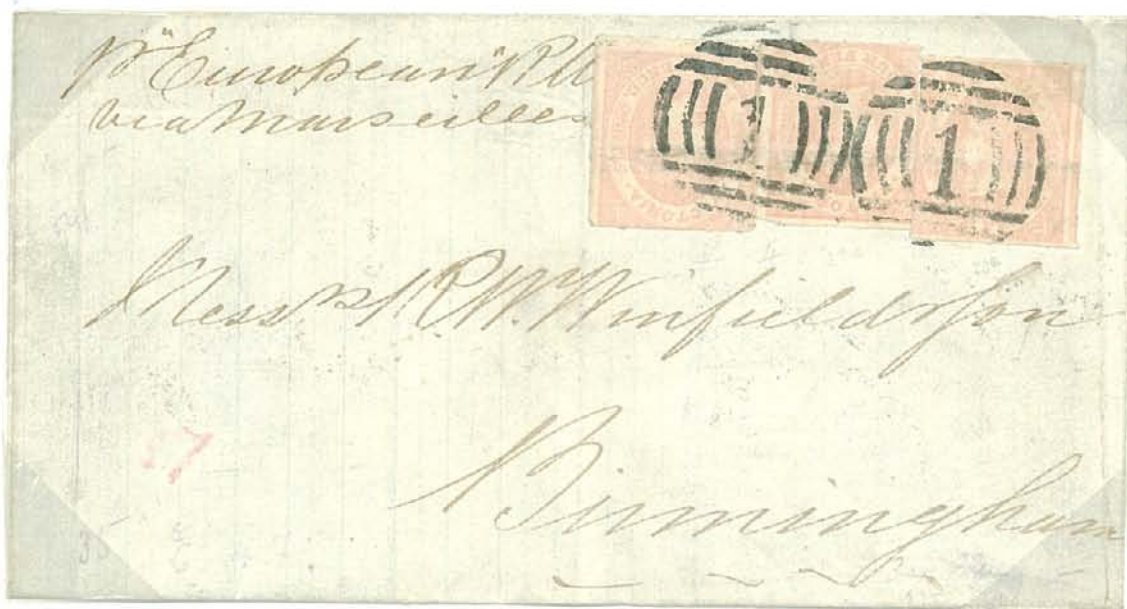 pr "European" RM
via Marseilles
VICTORIA
1
1
Messrs R. W. Winfield & Son
Birmingham